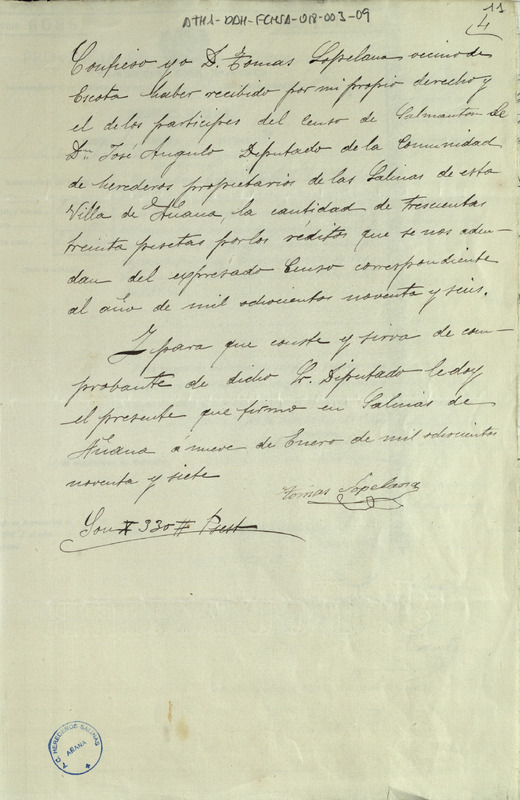 ATHA-DAH-FCMSA-018-003-09
11
4
Confieso yo D. Tomas Sopelana vecino de
Escota haber recibido por mi propio derecho y
el de los participes del Censo de Salmanton de
Dn José Angulo Diputado de la Comunidad
de herederos propietarios de las Salinas de esta
Villa de Añana, la cantidad de trescientas
treinta pesetas por los réditos que se nos adeu-
dan del expresado Censo correspondiente
al año de mil ochocientos noventa y seis.
Y para que conste y sirva de com-
probante de dicho Sr. Diputado le doy
el presente que firmo en Salinas de
Añana á nueve de Enero de mil ochocientos
noventa y siete
Tomas Sopelana
Son # 330 # Pset
C. HEREDEROS SALINAS
AÑANA